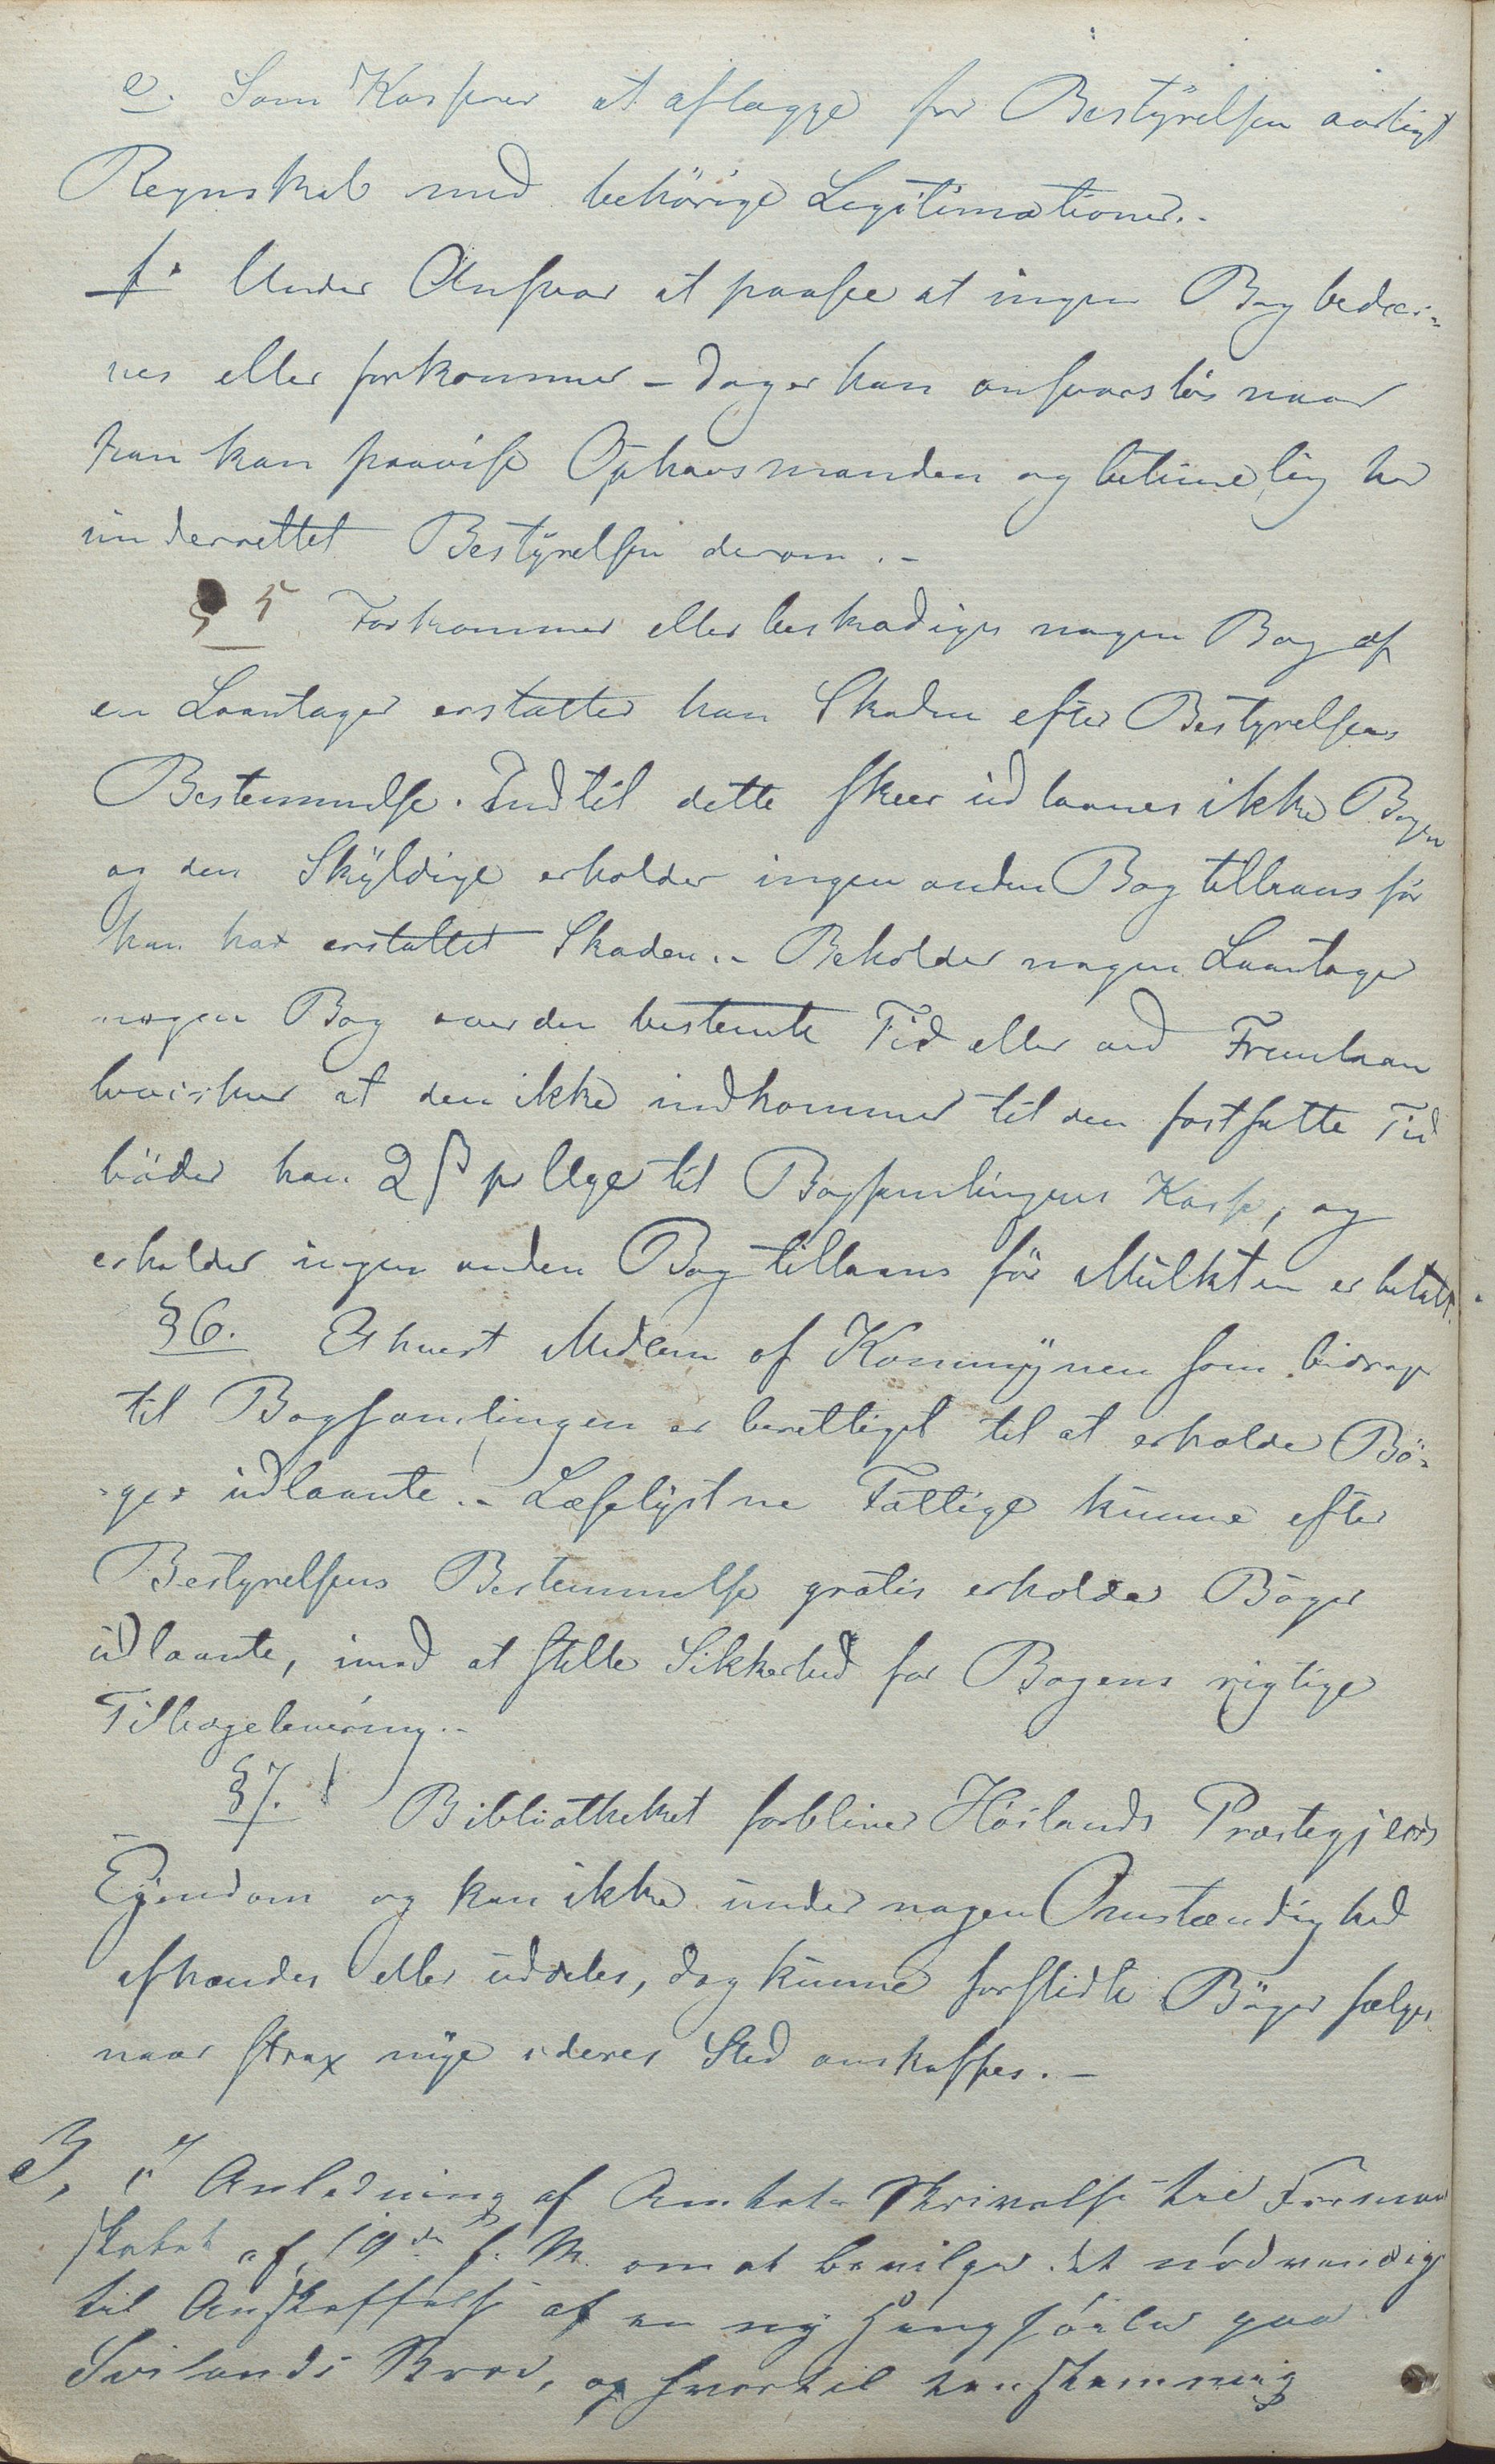 e. Som Kasserer at aflægge for Bestÿrelsen aarligt
Regnskab med behörige Legitimationer.-
f. Under Ansvar at paasee at ingen Bog bedær-
ves eller forkommer - dog er han ansvarslös naar
han kan paavise Ophavsmanden og betimelig har
underrettet Bestÿrelsen derom.-
§ 5 Forkommer eller beskadiges nogen Bog af
en Laantager erstatter han Skaden efter Bestyrelsens
Bestemmelse. Indtil dette skeer udlaanes ikke Bogen
og den Skÿldige erholder ingen anden Bog tillaans för
han har erstattet Skaden.- Beholder nogen Laantager
nogen Bog over den bestemte Tid eller ved Fremlaan
bevirker at den ikke indkommer til den fastsatte Tid
böder han 2 ß pr Uge til Bogsamlingens Kasse, og
erholder ingen anden Bog tillaans för Mulkten er betalt.
§6. Ethvert Medlem af Kommÿnen som bidrager
til Bogsamlingen er berettiget til at erholde Bö-
-ger udlaante.- Læselystne Fattige kunne efter
Bestyrelsens Bestemmelse gratis erholde Böger
udlaante, imod at stille Sikkerhed for Bogens rigtige
Tilbagelevering.-
§7. Bibliotheket forbliver Höilands Præstegjelds
Eÿendom og kan ikke under nogen Omstændighed
afhændes eller uddeles, dog kunne forslidte Böger sælges
naar strax nÿe i deres Sted anskaffes.-
3, i Anledning af Amtets Skrivelse til Forman
skabet af 19de f. M. om at bevilge det nödvendige
til Anskaffelse af en ny Hængsöile paa
Svilands Broe, og hvortil tenstemmig